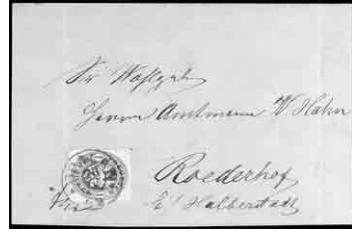 Sr Wohlgeb
Herrn Amtmann W Hahn
Roederhof
b/ Halberstadt